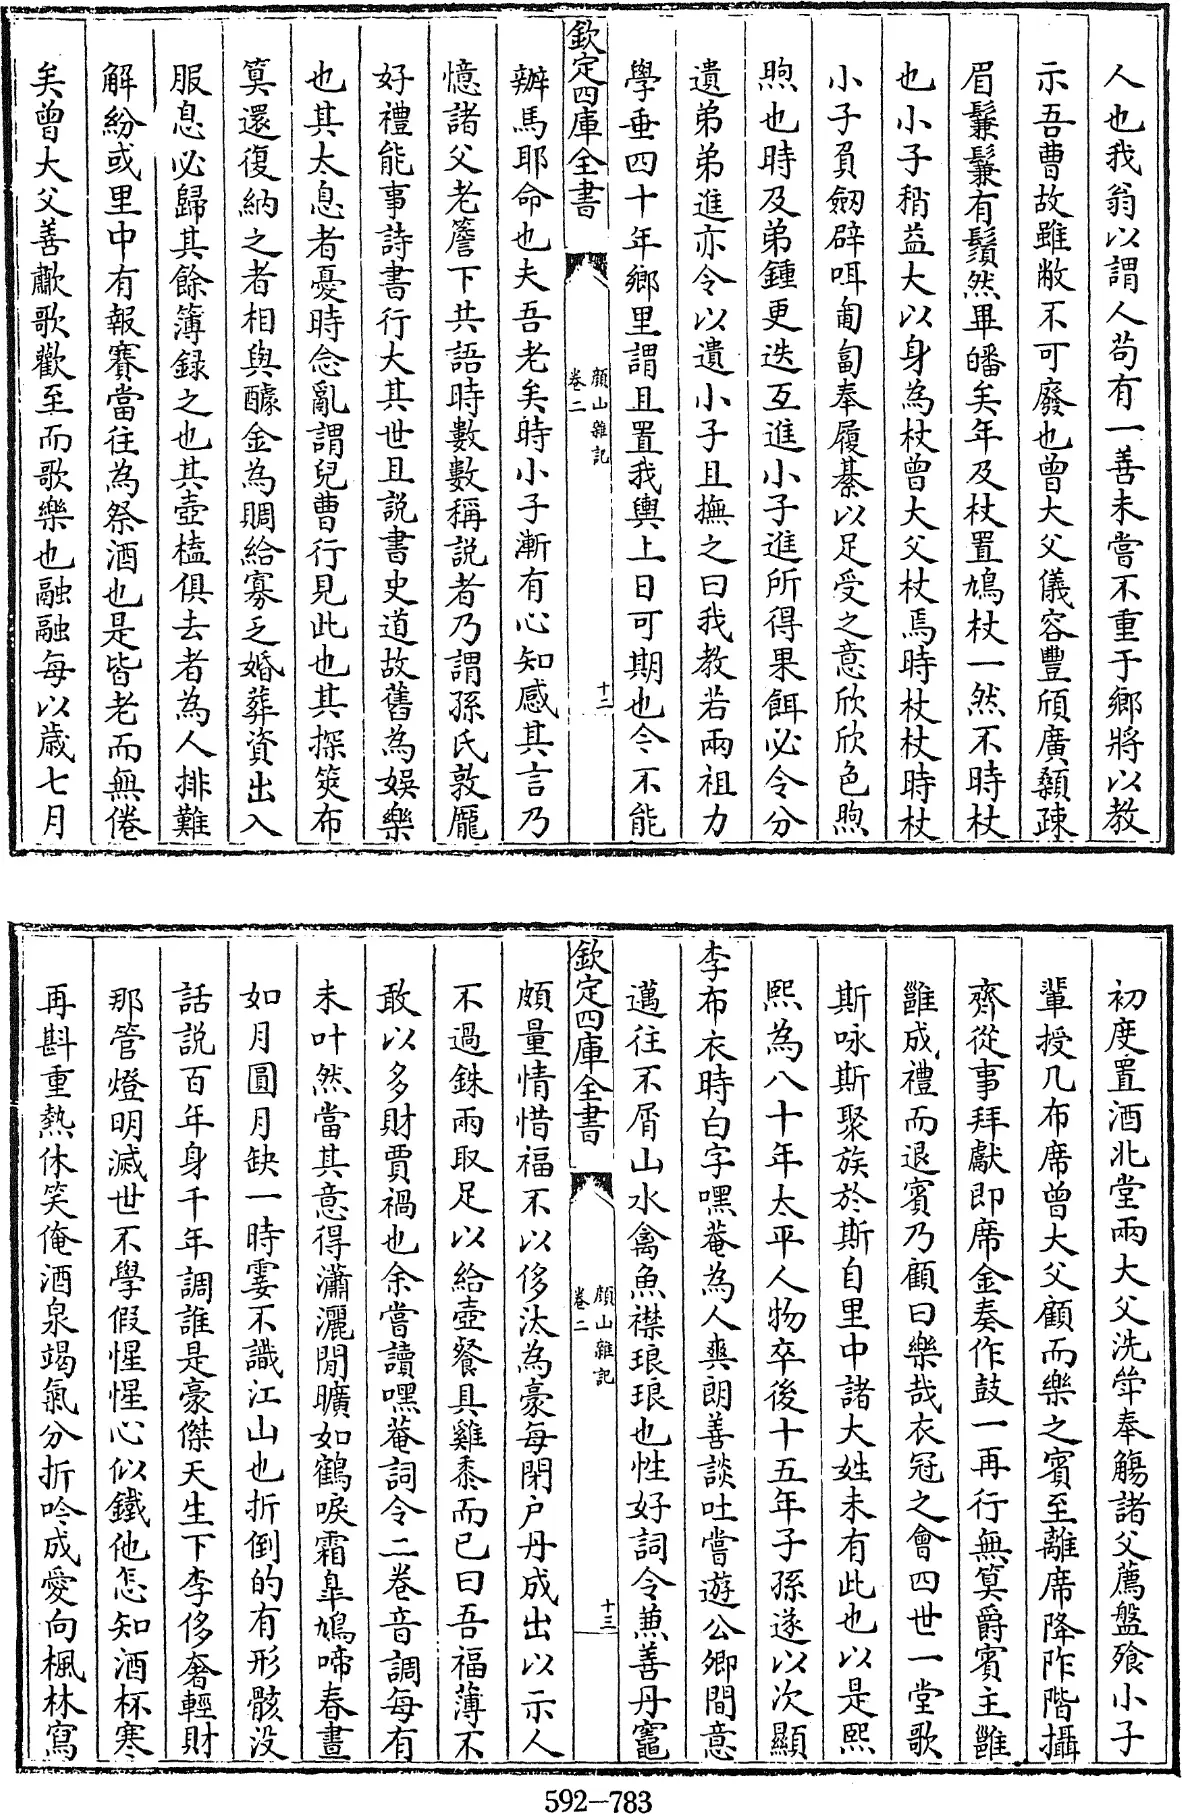 人也我翁以謂人茍有一善未嘗不重于鄉將以教
示吾曹故雖敝不可廢也曾大父儀容豐頎廣顙疎
眉鬑鬑有鬚然畢皤矣年及杖置鳩杖一然不時杖
也小子稍益大以身為杖曾大父杖焉時杖杖時杖
小子負劒辟咡匍匐奉履綦以足受之意欣欣色煦
煦也時及弟鍾更迭互進小子進所得果餌必令分
遺弟弟進亦令以遺小子且撫之曰我教若兩祖力
學垂四十年鄉里謂且置我輿上日可期也今不能
欽定四庫全書
顔山雜記
卷二
十二
辦馬耶命也夫吾老矣時小子漸有心知感其言乃
憶諸父老簷下共語時數數稱説者乃謂孫氏敦龐
好禮能事詩書行大其世且説書史道故舊為娱樂
也其太息者憂時念亂謂兒曹行見此也其探筴布
筭還復納之者相與醵金為賙給寡乏婚葬資出入
服息必歸其餘簿録之也其壺榼俱去者為人排難
解紛或里中有報賽當往為祭酒也是皆老而無倦
矣曾大父善歗歌歡至而歌樂也融融每以歳七月
初度置酒北堂兩大父洗斝奉觴諸父薦盤飱小子
輩授几布席曾大父顧而樂之賓至離席降阼階攝
齊從事拜獻即席金奏作鼓一再行無筭爵賓主雝
雝成禮而退賓乃顧曰樂哉衣冠之會四世一堂歌
斯咏斯聚族於斯自里中諸大姓未有此也以是熙
熙為八十年太平人物卒後十五年子孫遂以次顯
李布衣時白字嘿菴為人爽朗善談吐嘗遊公卿間意
邁往不屑山水禽魚襟琅琅也性好詞令兼善丹竈
欽定四庫全書
顔山雜記
卷二
十三
頗量情惜福不以侈汰為豪每閉户丹成出以示人
不過銖兩取足以給壺餐具雞黍而已曰吾福薄不
敢以多財賈禍也余嘗讀嘿菴詞令二卷音調每有
未叶然當其意得瀟灑閒曠如鶴唳霜臯鳩啼春晝
如月圓月缺一時霎不識江山也折倒的有形骸没
話説百年身千年調誰是豪傑天生下李侈奢輕財
那管燈明滅世不學假惺惺心似鐵他怎知酒杯寒
再斟重熱休笑俺酒泉竭氣分折呤成愛向楓林寫
592—783